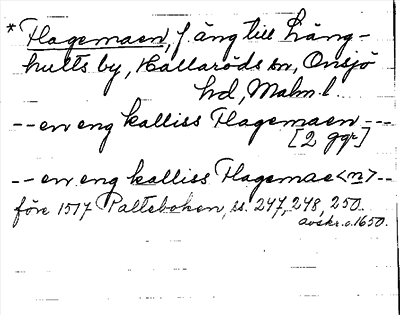 * Flagemaen, f. äng till Häng-
hults by, Hallaröds sn, Onsjö
hd, Malm.l.
-- en eng kalliss Flagemaen ---
[2 ggr]
-- en eng kalliss Flagemae<n>--
före 1517 Palteboken, ss. 247, 248, 250.
avskr. c. 1650.